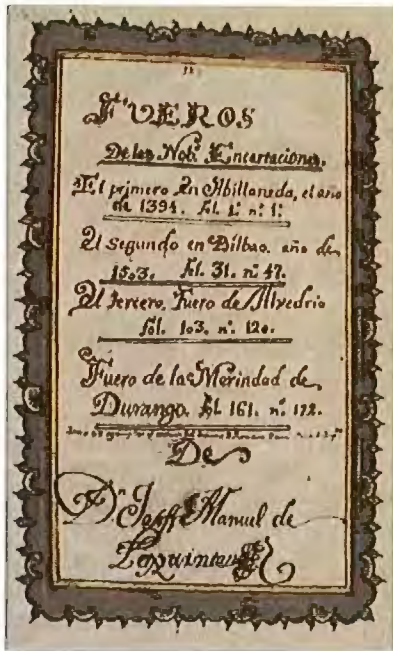 FUEROS
De las Nobs. Encartaciones.
El primero en Abillaneda, el año
de 1394. fol. 1º. nº. 1º.
El segundo en Bilbao. año de
1503. fol. 31. nº. 47.
El tercero, fuero de Alvedrio
fol. 103. nº. 120.
Fuero de la Merindad de
Durango. fol. 161. nº. 172.
De
Dn. Joseff Manuel de